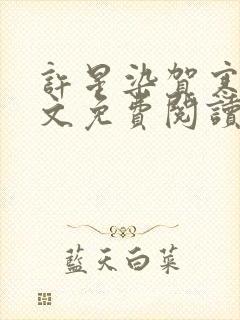 許星染賀寒
文免費閱讀
藍天白菜